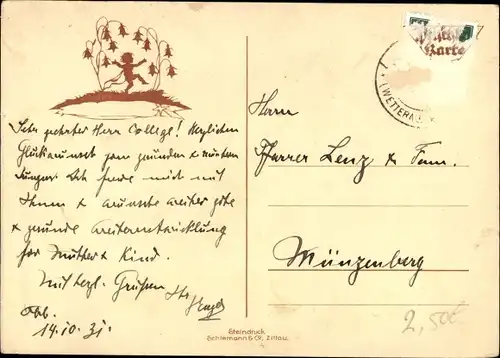 Sehr geehrter Herr College! Herzlichen
Glückwunsch zum gesunden &
Jungen. Ich freue mich mit
Ihnen & wünsche weiter gute
& gesunde Weiterentwicklung
für Mutter & Kind.
Mit herzl. Grüßen Ihr
14.10.31.
Herrn
Pfarrer Lenz & Fam.
Münzenberg
Karte
(WETTERAU
2,50€
Steindruck
Schiemann & Co. Zittau